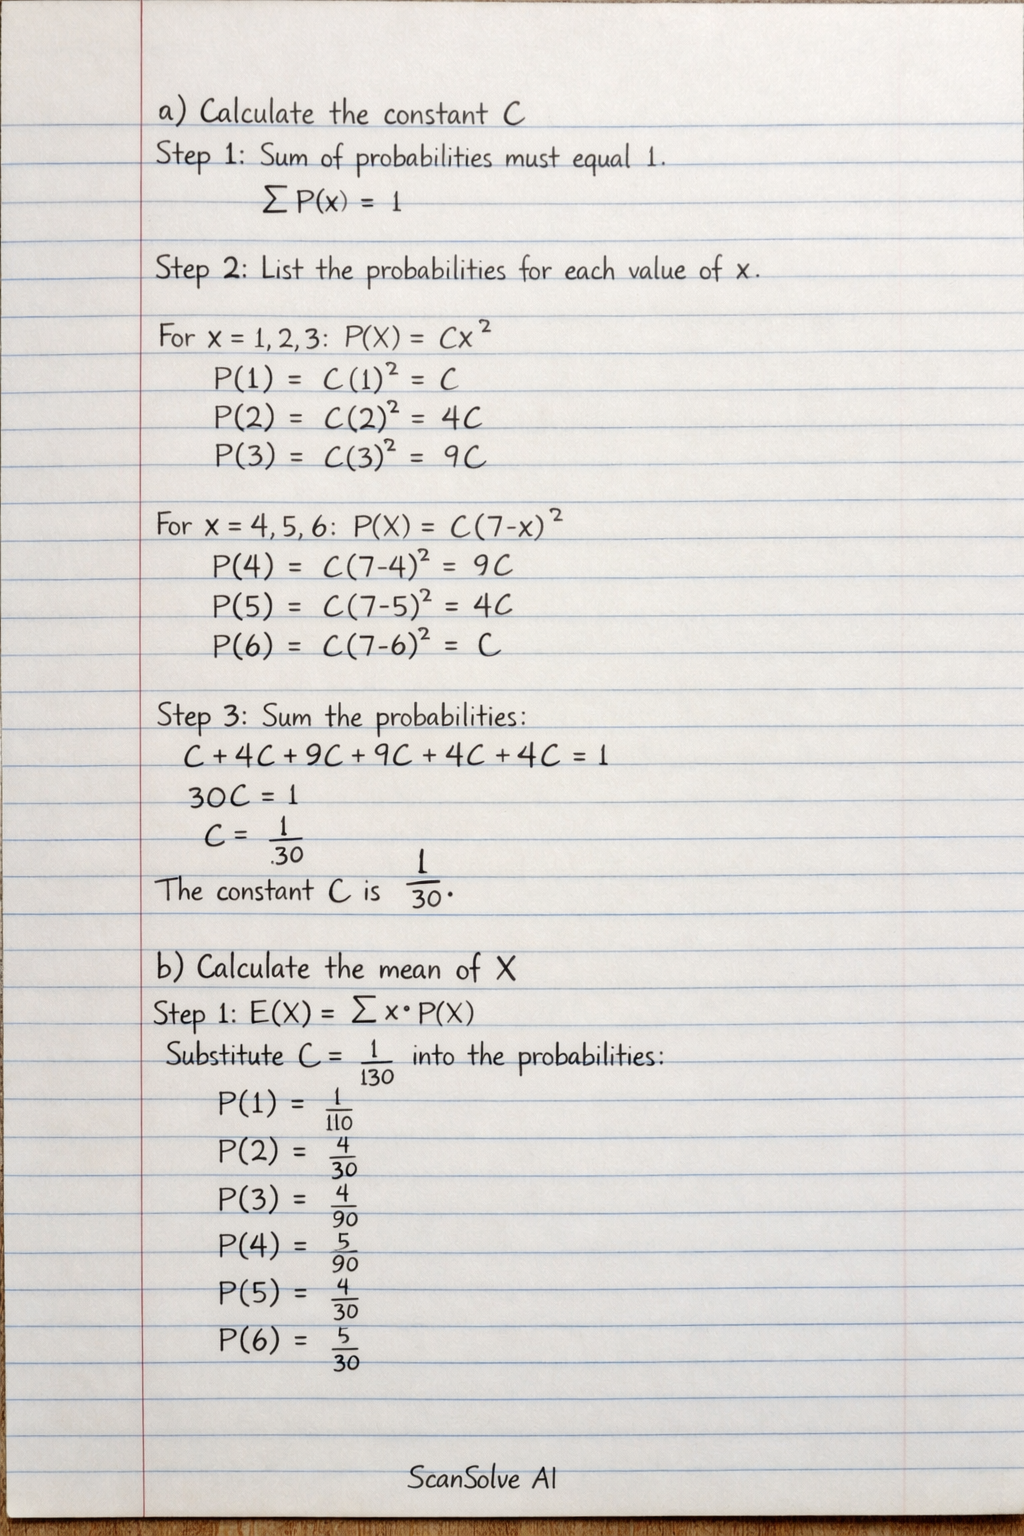 a) Calculate the constant C
Step 1: Sum of probabilities must equal 1.
∑ P(x) = 1
Step 2: List the probabilities for each value of x.
For x = 1, 2, 3: P(X) = Cx²
P(1) = C(1)² = C
P(2) = C(2)² = 4C
P(3) = C(3)² = 9C
For x = 4, 5, 6: P(X) = C(7-x)²
P(4) = C(7-4)² = 9C
P(5) = C(7-5)² = 4C
P(6) = C(7-6)² = C
Step 3: Sum the probabilities:
C + 4C + 9C + 9C + 4C + 4C = 1
30C = 1
C = 1/.30
The constant C is 1/30.
b) Calculate the mean of X
Step 1: E(X) = ∑ x• P(X)
Substitute C = 1/130 into the probabilities:
P(1) = 1/110
P(2) = 4/30
P(3) = 4/90
P(4) = 5/90
P(5) = 4/30
P(6) = 5/30
ScanSolve AI